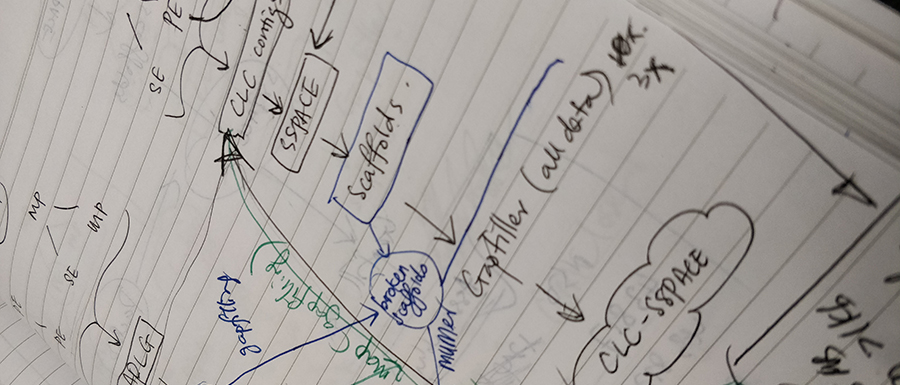 PE
SE
CLC contigs
SSPACE
Scaffolds.
GapFiller (all data)
3x
MP
MP
SE
PE
gapfilling
gapfilling
broken
scaffolds
mummer
map
CLC-SSPACE